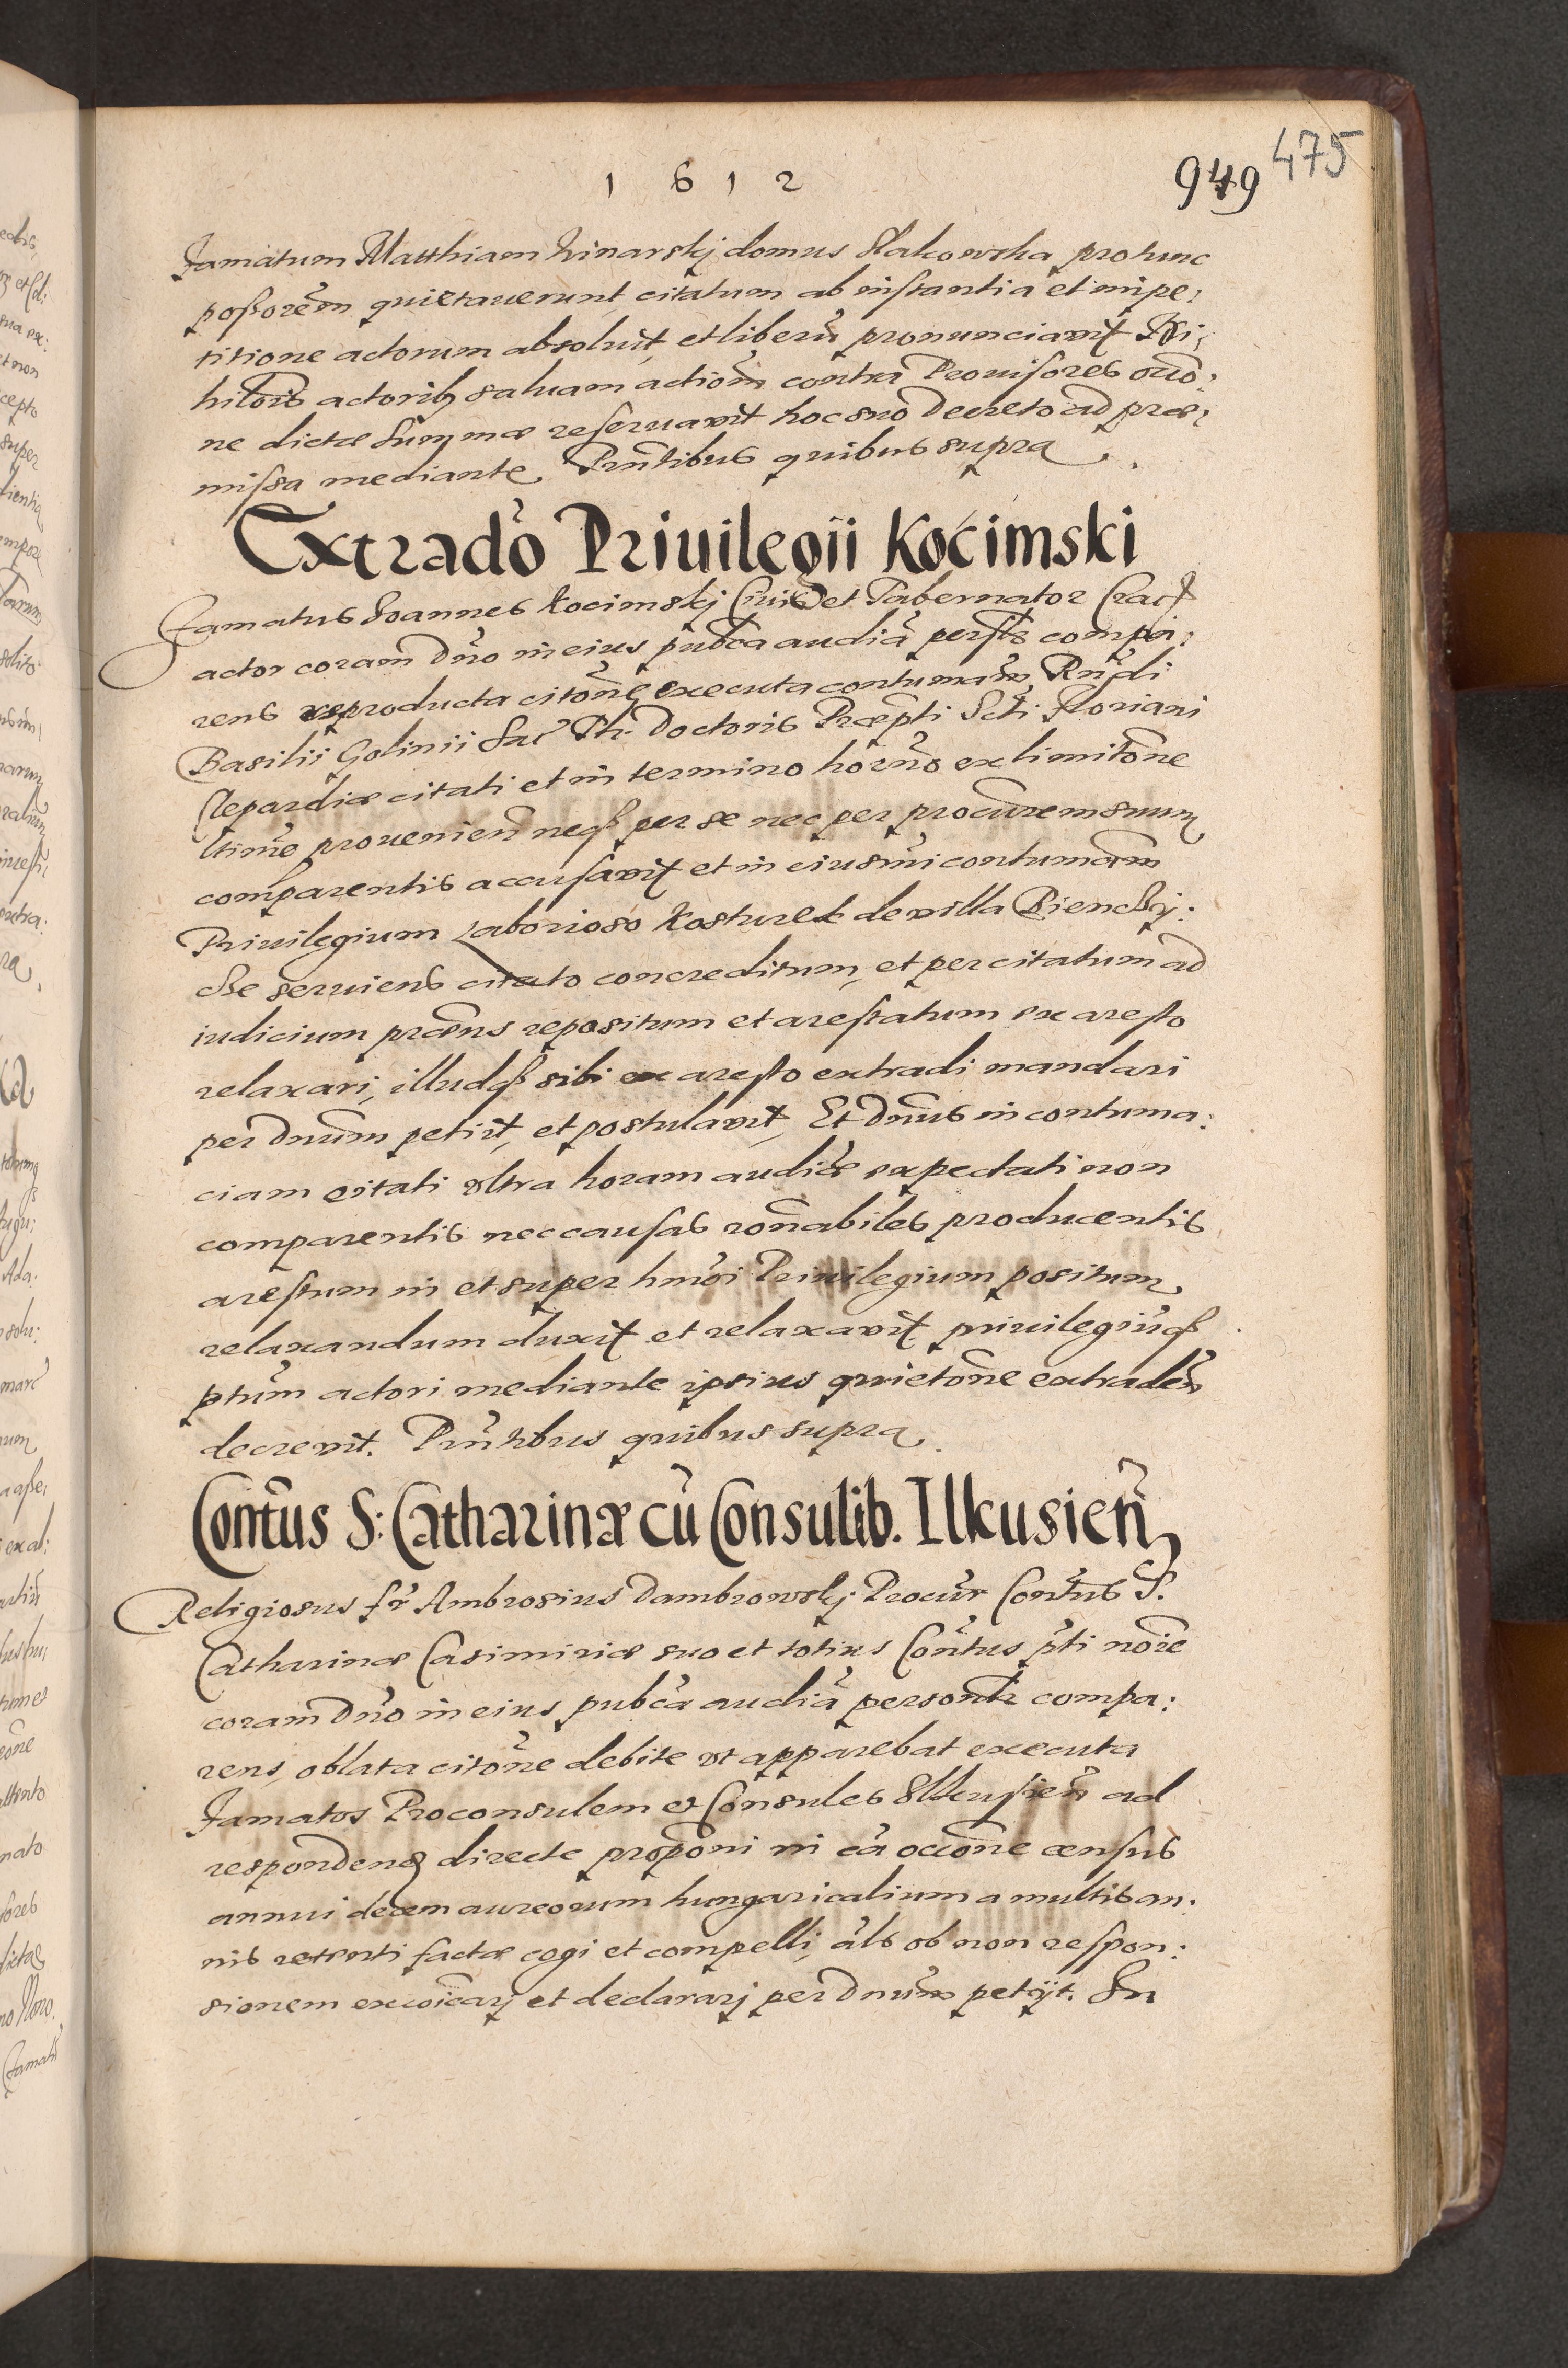 1 6 1 2
949 475
Famatum Matthiam Winarskj domus Slakowska pro tunc
poßorẽm quietauerunt, citatum ab instantia et impe:
titione actorum absoluit, et liberũ pronunciauit Ni:
hilõis actorib9 saluam actiõm contra Prouisores occõ:
ne dictæ Summæ reseruauit hoc suo Decreto ad præ:
missa mediante. Prñtibus quibus supra.
Extradõ Priuilegii Koćimski
Famatus Joannes Kocimskj Ciuis et Tabernator Crac̃
actor coram Dño in eius pubca audiã persłr compa:
rens reproducta citõne executa contumam Rñdi
Basilii Golinii Sac̃ Th: Doctoris Præpti Scti Floriani
Clepardiæ citati et in termino hõrno ex limitõne
ltimẽ prouenien neq3 per se nec per procurem suum
comparentis accusauit et in eiusmi contumam
Priuilegium Laborioso Kosturek de villa Bienckj:
ce seruiens citato concreditum, et per citatum ad
iudicium præns repositum et arestatum ex aresto
relaxari, illudq3 sibi ex aresto extradi mandari
per Dnum petiit, et postulauit, Et Dnus in contuma:
ciam citati vltra horam audiæ expectati non
comparentis nec causas ronabiles producentis
arestum in et super hmõi Priuilegium positum
relaxandum duxit et relaxauit priuilegiũq3
ptum actori mediante ipsius quietõne extraden̄
decreuit. Prñtibus quibus supra.
Contũus S: Catharinæ cũ Consulib. Ilkusien̄
Religiosus fr̃ Ambrosius Dambrowskj Procur̃ Contũus S.
Catharinæ Casimiriæ suo et totius Contũus p̃ti noĩe
coram Dño in eius pubca audiã personłr compa:
rens, oblata citõne debite vt apparebat executa
Famatos Proconsulem et Consules Ilkusien̄ ad
responden̄ directe propõni in cã occõne census
annui decem aureorum hungaricalium a multis an:
nis retenti factæ cogi et compelli, als ob non respon:
sionem excoĩcarj et declararj per Dnum petijt. In